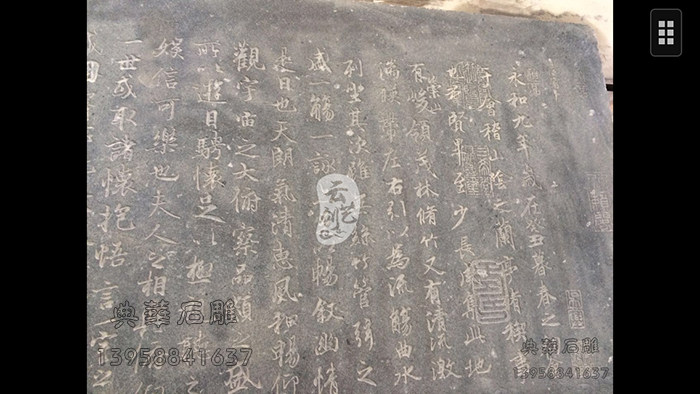 永和九年歲在癸丑暮春之
于會稽山陰之蘭亭脩禊
也群賢畢至少長咸集此地
有崇山峻領茂林脩竹又有清流激
湍暎帶左右引以為流觴曲水
列坐其次雖無絲竹管弦之
盛一觴一詠暢敘幽情
是日也天朗氣清惠風和暢仰
觀宇宙之大俯察品類之盛
所以遊目騁懷足以極
娛信可樂也夫人之相
一世或取諸懷抱悟言一室之
或因
云艺
典華石雕
13958841637
典華石雕
13958841637